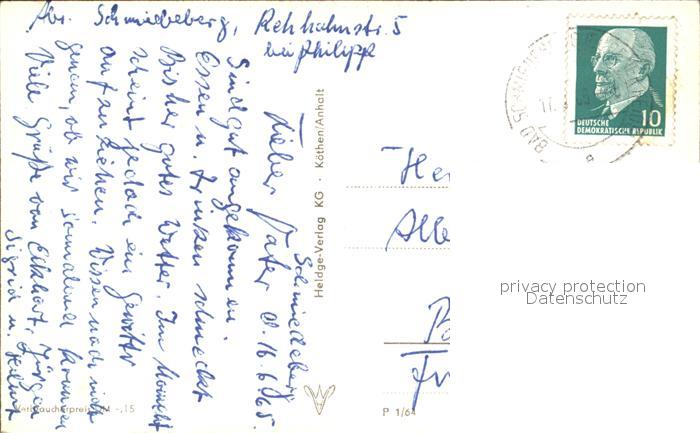 Abs. Schmiedeberg, Rehhahnstr. 5
bei Philipp
Schmiedeberg
Lieber Vater d. 16.6.65.
Sind gut angekommen.
Essen u. Trinken schmeckt
Bisher gutes Wetter. Im Moment
scheint jedoch ein Gewitter
aufzuziehen. Wissen noch nicht
genau, ob wir Sonnabend kommen
Viele Grüße von Ekkhart, Jürgen
Sigrid u. Helmut
Heldge-Verlag KG · Köthen/Anhalt
Verbraucherpreis DM -,15
P 1/64
BAD SCHMIEDEBERG
17.
DEUTSCHE
DEMOKRATISCHE REPUBLIK
10
He
Alle
B
privacy protection
Datenschutz